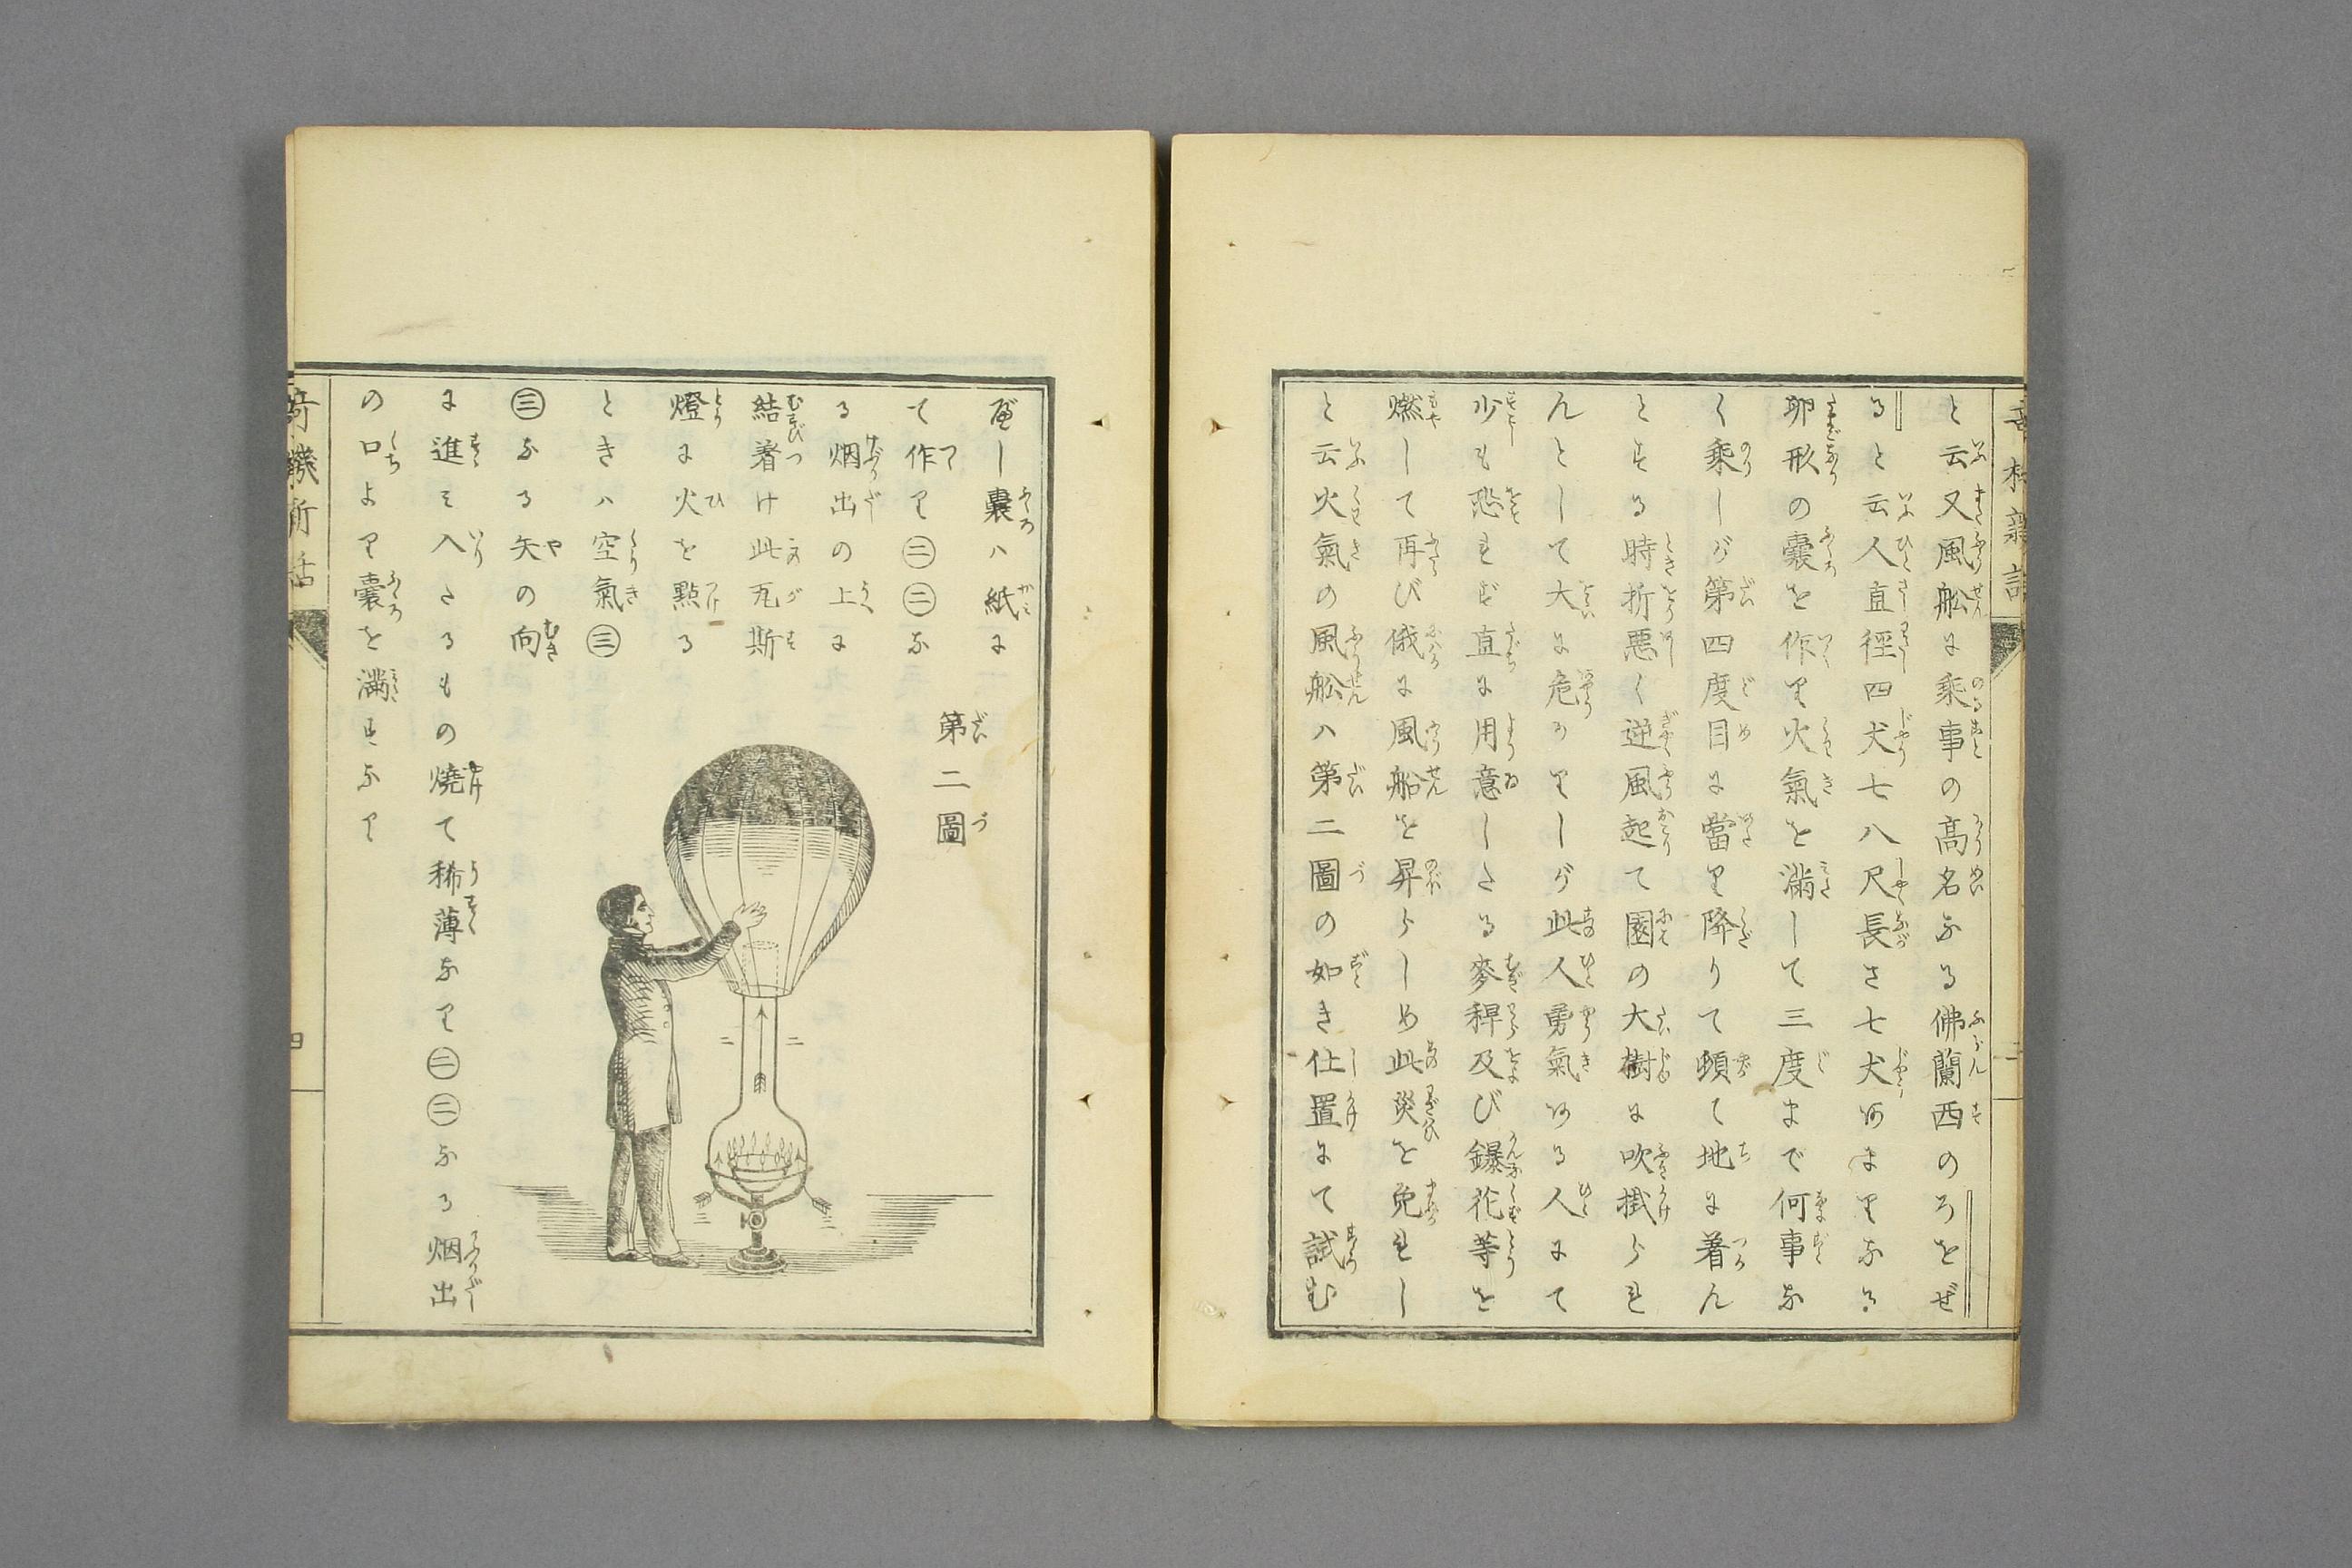 と云又風舩に乘事の高名なる佛蘭西のろをぜ
ると云人直徑四丈七八尺長さ七丈あまりなる
卵形の嚢を作り火氣を滿して三度まで何事な
く乘しが第四度目に當り降りて頓て地に着ん
とする時折悪く逆風起て園の大樹に吹掛られ
んとして大に危かりしが此人勇氣ある人にて
少も恐れず直に用意したる麥稈及び鑤花等を
燃して再び俄に風船を昇らしめ此災を免れし
と云火氣の風舩ハ第二圖の如き仕置にて試む
べし嚢ハ紙に
て作り㊁㊁な
る烟出の上に
結着け此瓦斯
燈に火を點る
ときハ空氣㊂
㊂なる矢の向
に進ミ入さるもの燒て稀薄なり㊁㊁なる烟出
の口より嚢を滿すなり
第二圖
二
二
奇機新話
四